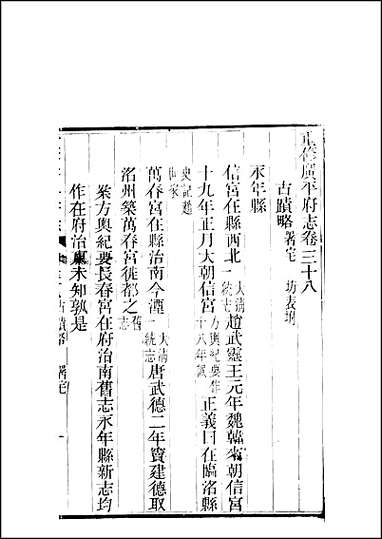 重修廣平府志卷三十八
古蹟略 署宅 坊表坿
永年縣
信宮在縣西北 大淸一統志 趙武靈王元年魏韓來朝信宮
十九年正月大朝信宮 方輿紀要作十八年誤 正義曰在臨洺縣
史記趙世家
萬春宮在縣治南今湮 大淸一統志 唐武德二年竇建德取
洺州築萬春宮徙都之 舊志
案方輿紀要長春宮在府治南舊志永年縣新志均
作在府治東未知孰是